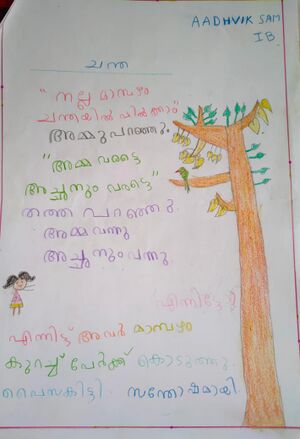 AADHVIK SAM
IB
ചന്ത
"നല്ല മാമ്പഴം
ചന്തയിൽ വിൽക്കാം"
അമ്മു പറഞ്ഞു.
"അമ്മ വരട്ടെ
അച്ഛനും വരട്ടെ"
തത്ത പറഞ്ഞു.
അമ്മ വന്നു
അച്ഛനും വന്നു.
എന്നിട്ടോ?
എന്നിട്ട് അവർ മാമ്പഴം
കുറച്ച് പേർക്ക് കൊടുത്തു.
പൈസകിട്ടി. സന്തോഷമായി.